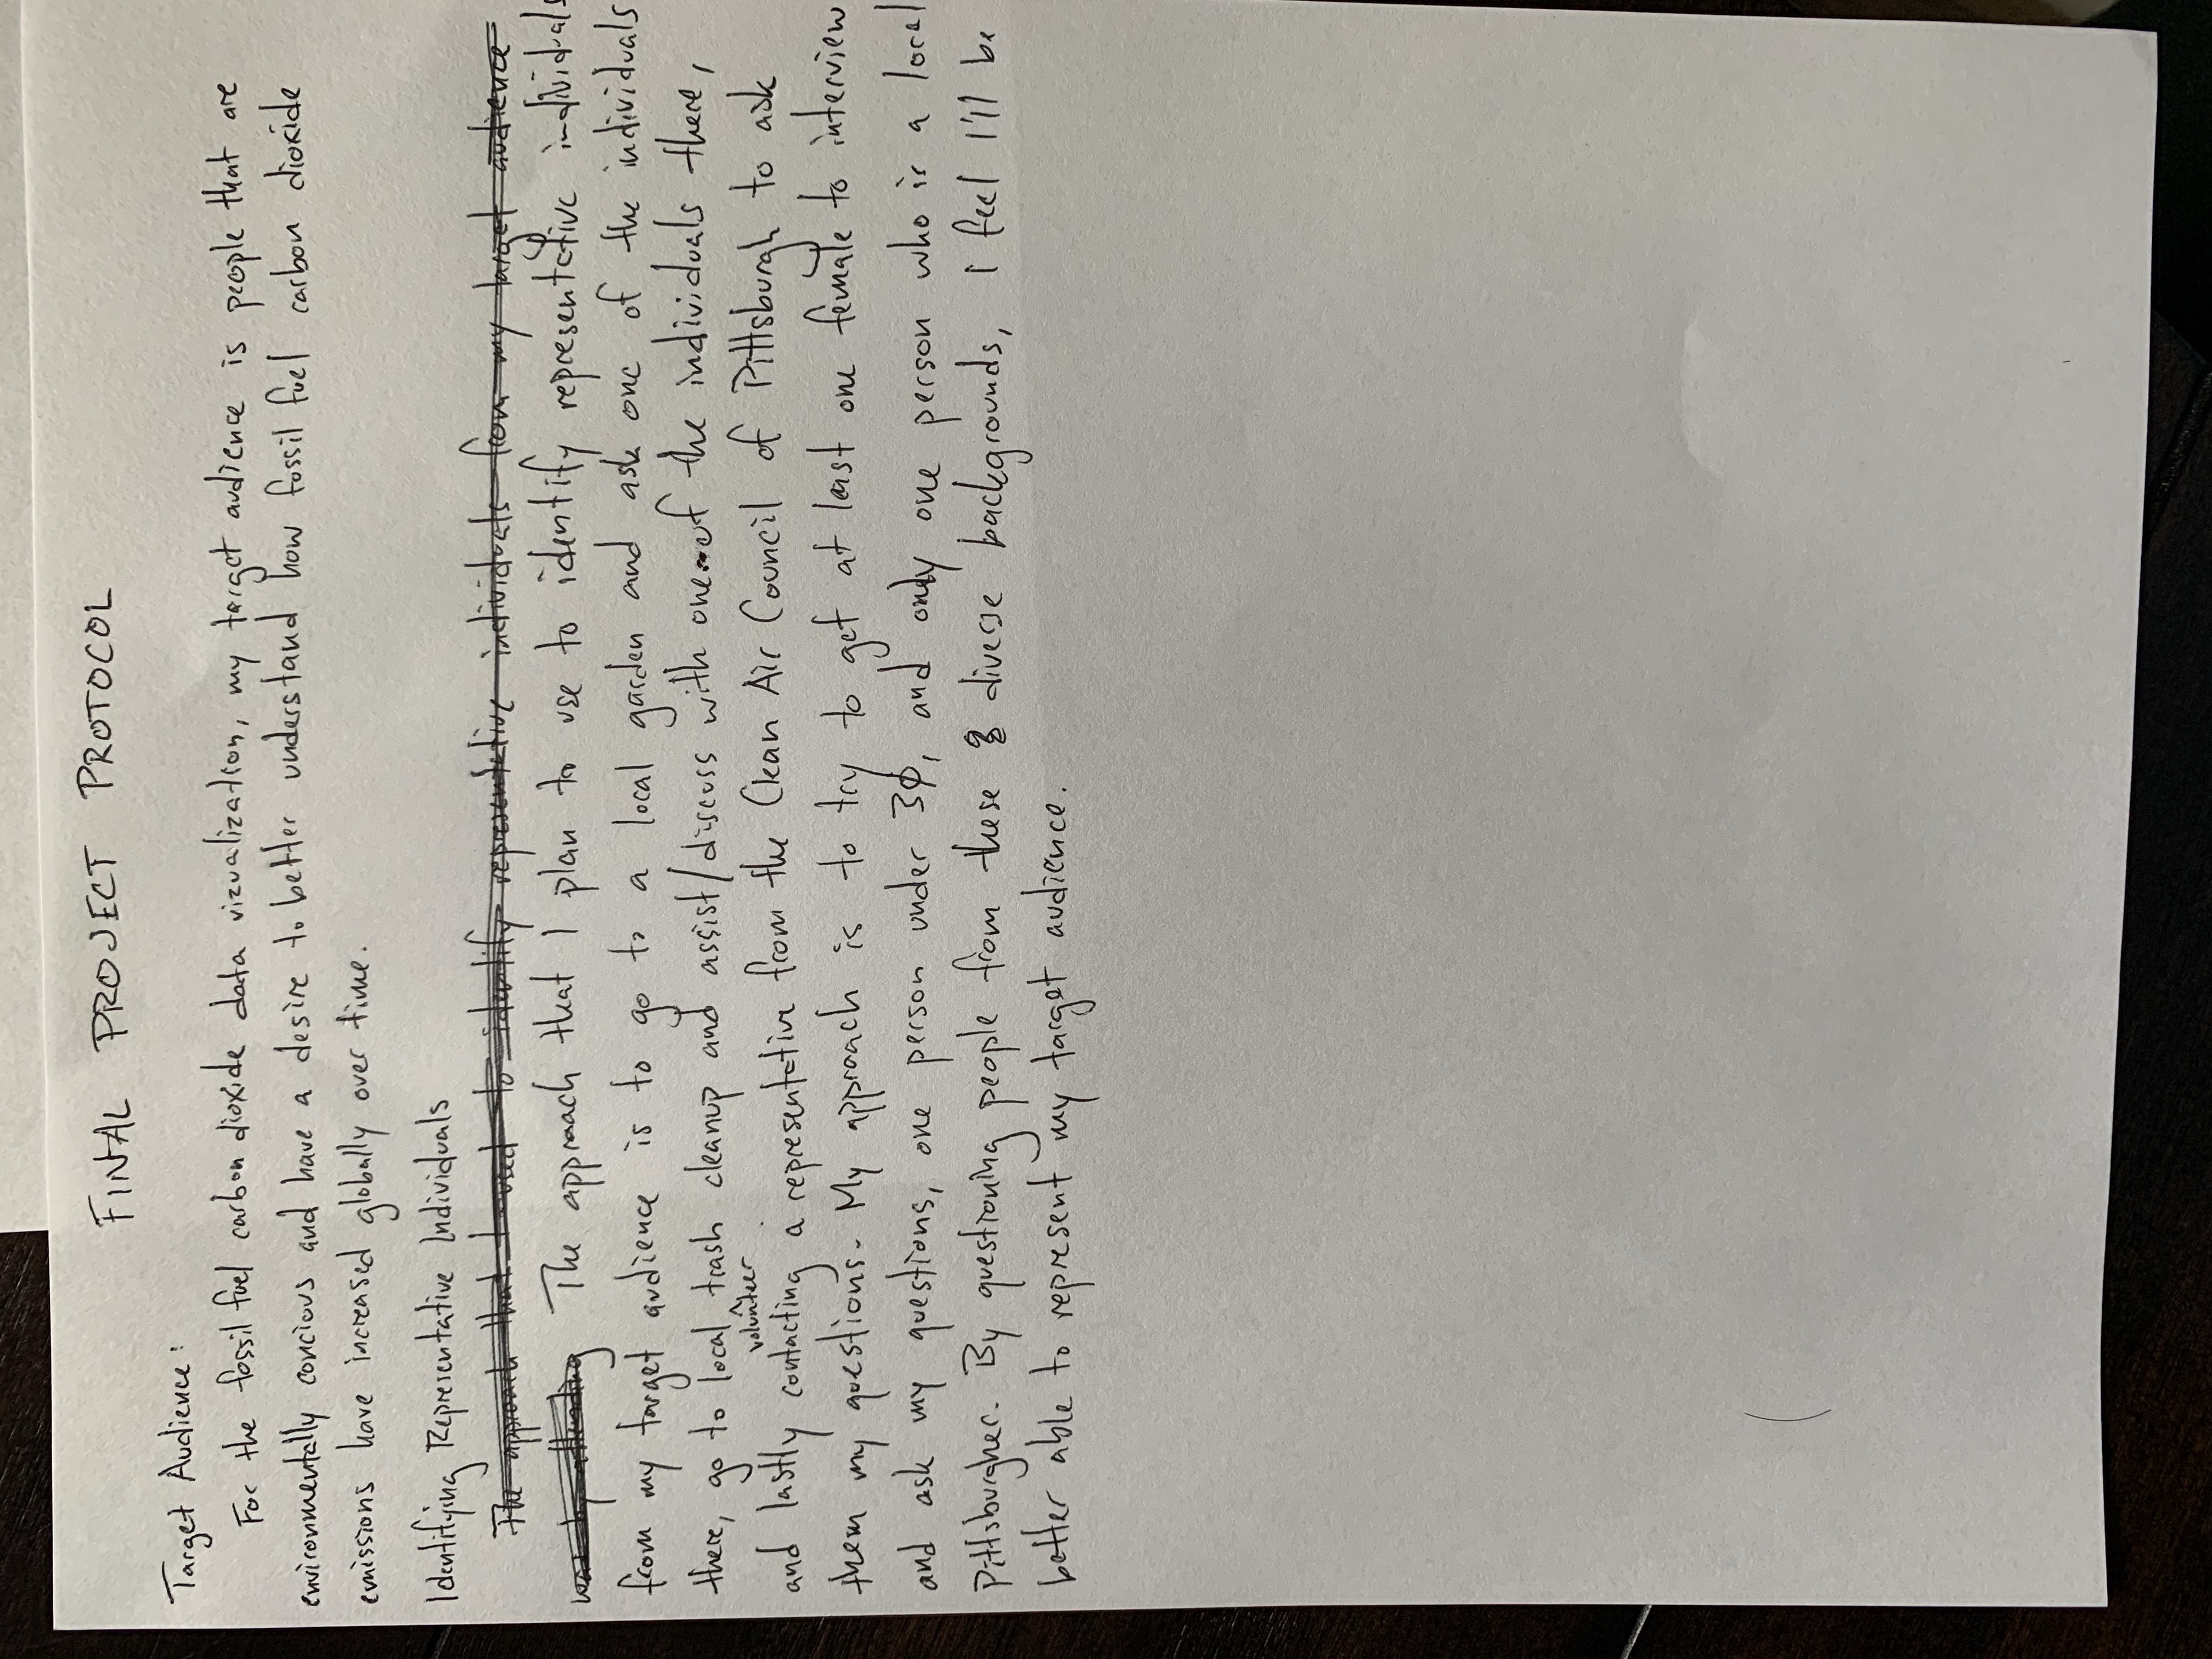 FINAL PROJECT PROTOCOL
Target Audience:
For the fossil fuel carbon dioxide data vizualization, my target audience is people that are
environmentally concious and have a desire to better understand how fossil fuel carbon dioxide
emissions have increased globally over time.
Identifying Representative Individuals
The approach that I used to identify representative individuals from my target audience
was by attending The approach that I plan to use to identify representative individuals
from my target audience is to go to a local garden and ask one of the individuals
there, go to local trash cleanup and assist/discuss with one of the individuals there,
volunteer
and lastly contacting a representative from the Clean Air Council of Pittsburgh to ask
them my questions. My approach is to try to get at least one female to interview
and ask my questions, one person under 30, and only one person who is a local
Pittsburgher. By questioning people from these diverse backgrounds, I feel I'll be
better able to represent my target audience.